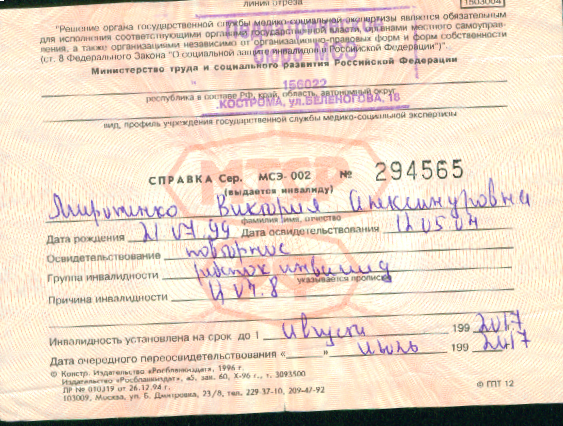 линия отреза
1503004
"Решение органа государственной службы медико-социальной экспертизы является обязательным
для исполнения соответствующими органами государственной власти, органами местного самоуправ-
ления, а также организациями независимо от организационно-правовых форм и форм собственности
(ст. 8 Федерального Закона "О социальной защите инвалидов в Российской Федерации")".
бюро МСЭ
Министерство труда и социального развития Российской Федерации
156022
республика в составе РФ, край, область, автономный округ
г.КОСТРОМА, ул.БЕЛЕНОГОВА, 15
вид, профиль учреждения государственной службы медико-социальной экспертизы
СПРАВКА Сер. МСЭ-002 № 294565
(выдается инвалиду)
Виктория Александровна
фамилия, имя, отчество
Дата рождения 21 07.99 Дата освидетельствования 12 05 04
Освидетельствование повторное
Группа инвалидности ребенок инвалид
указывается прописью
Причина инвалидности
Инвалидность установлена на срок до 1 августа 199 2017
Дата очередного переосвидетельствования « » июль 199 2017
© Констр. Издательство «Росбланкиздат», 1996 г.
Издательство «Росбланкиздат», а5, зав. 60, Х-96 г., т. 3093500
ЛР № 010319 от 26.12.94 г.
103009, Москва, ул. Б. Дмитровка, 23/8, тел. 229-37-10, 209-47-92
Ф ГПТ 12